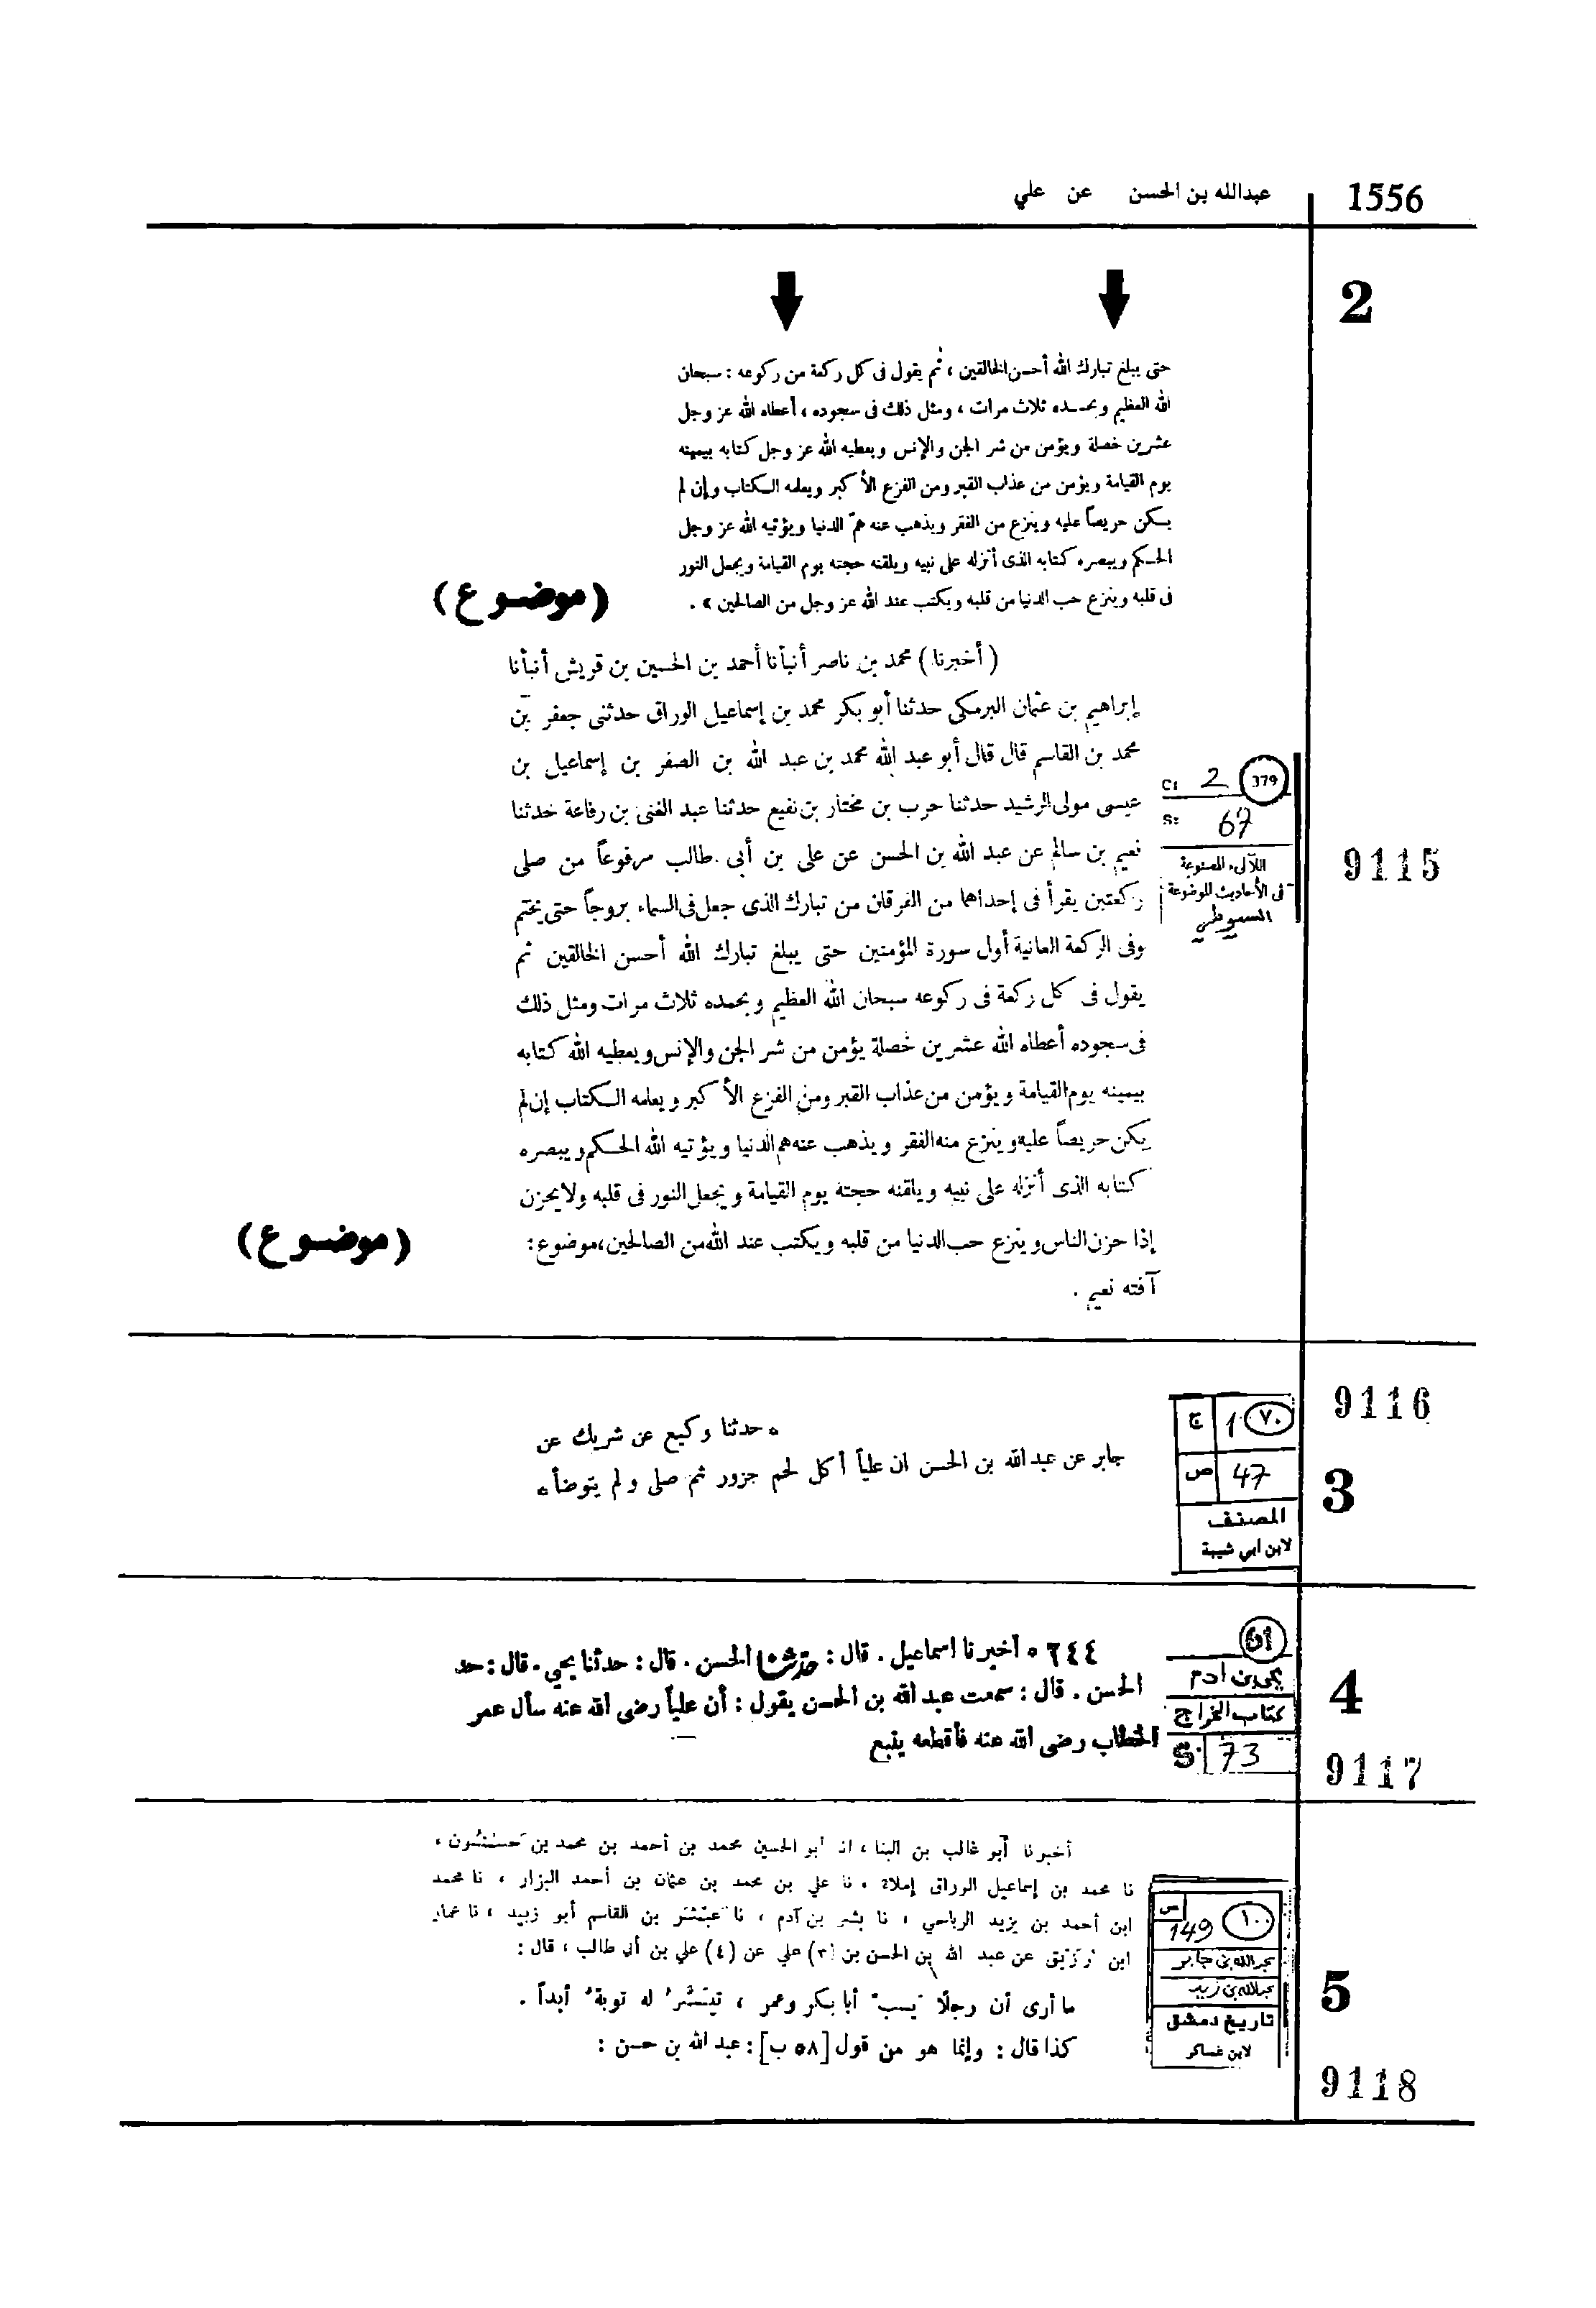 1556
عبدالله بن الحسن عن علي
2
حتى يبلغ تبارك الله أحسن الخالقين ، ثم يقول فى كل ركعة من ركوعه : سبحان
الله العظيم وبحمده ثلاث مرات ، ومثل ذلك فى سجوده ، أعطاه الله عز وجل
عشرين خصلة ويؤمن من شر الجن والإنس ويعطيه الله عز وجل كتابه بيمينه
يوم القيامة ويؤمن من عذاب القبر ومن الفزع الأكبر ويعلمه الكتاب وإن لم
يكن حريصاً عليه وينزع من الفقر ويذهب عنه همّ الدنيا ويؤتيه الله عز وجل
الحكم ويبصره كتابه الذى أنزله على نبيه ويلقنه حجته يوم القيامة ويجعل النور
فى قلبه وينزع حب الدنيا من قلبه ويكتب عند الله عز وجل من الصالحين » .
(موضوع)
( أخبرنا ) محمد بن ناصر أنبأنا أحمد بن الحسين بن قريش أنبأنا
إبراهيم بن عثمان البرمكى حدثنا أبو بكر محمد بن إسماعيل الوراق حدثنى جعفر بن
محمد بن القاسم قال قال أبو عبد الله محمد بن عبد الله بن الصفر بن إسماعيل بن
عيسى مولى الرشيد حدثنا حرب بن مختار بن نفيع حدثنا عبد الغنى بن رفاعة حدثنا
نعيم بن سالم عن عبد الله بن الحسن عن على بن أبى طالب مرفوعاً من صلى
ركعتين يقرأ فى إحداهما من الفرقان من تبارك الذى جعل فى السماء بروجاً حتى يختم
وفى الركعة الثانية أول سورة المؤمنين حتى يبلغ تبارك الله أحسن الخالقين ثم
يقول فى كل ركعة فى ركوعه سبحان الله العظيم وبحمده ثلاث مرات ومثل ذلك
فى سجوده أعطاه الله عشرين خصلة يؤمن من شر الجن والإنس ويعطيه الله كتابه
بيمينه يوم القيامة ويؤمن من عذاب القبر ومن الفزع الأكبر ويعلمه الكتاب إن لم
يكن حريصاً عليه وينزع منه الفقر ويذهب عنه هم الدنيا ويؤتيه الله الحكم ويبصره
كتابه الذى أنزله على نبيه ويلقنه حجته يوم القيامة ويجعل النور فى قلبه ولا يحزن
إذا حزن الناس وينزع حب الدنيا من قلبه ويكتب عند الله من الصالحين،موضوع:
آفته نعيم .
(موضوع)
379
C: 2
S: 67
اللآلىء المصنوعة
فى الأحاديث الموضوعة
السيوطي
9115
9116
٭ حدثنا وكيع عن شريك عن
جابر عن عبد الله بن الحسن ان علياً أكل لحم جزور ثم صلى ولم يتوضأ ٭
٧٠ 1 ج
47 ص
المصنف
لابن ابي شيبة
3
٢٤٤ ٭ أخبرنا اسماعيل . قال : حدثنا الحسن . قال : حدثنا يحيى . قال : حد
الحسن . قال : سمعت عبد الله بن الحسن يقول : أن علياً رضى الله عنه سأل عمر
الخطاب رضى الله عنه فأقطعه ينبع
يحيى بن آدم
كتاب الخراج
S: 73
4
9117
أخبرنا أبو غالب بن البنا ، انا أبو الحسين محمد بن أحمد بن محمد بن حسنون ،
نا محمد بن إسماعيل الوراق إملاءً ، نا علي بن محمد بن عثمان بن أحمد البزار ، نا محمد
ابن أحمد بن يزيد الرياحي ، نا بشر بن آدم ، نا عبثر بن القاسم أبو زبيد ، نا عمار
ابن رزيق عن عبد الله بن الحسن بن (٣) علي عن (٤) علي بن أبي طالب ، قال :
ما أرى أن رجلًا يسب أبا بكر وعمر ، تيسّر له توبة أبداً .
كذا قال : وإنما هو من قول [٥٨ ب] : عبد الله بن حسن :
١٠٠
ص 149
عبدالله بن جابر
عبدالله بن زيد
تاريخ دمشق
لابن عساكر
5
9118